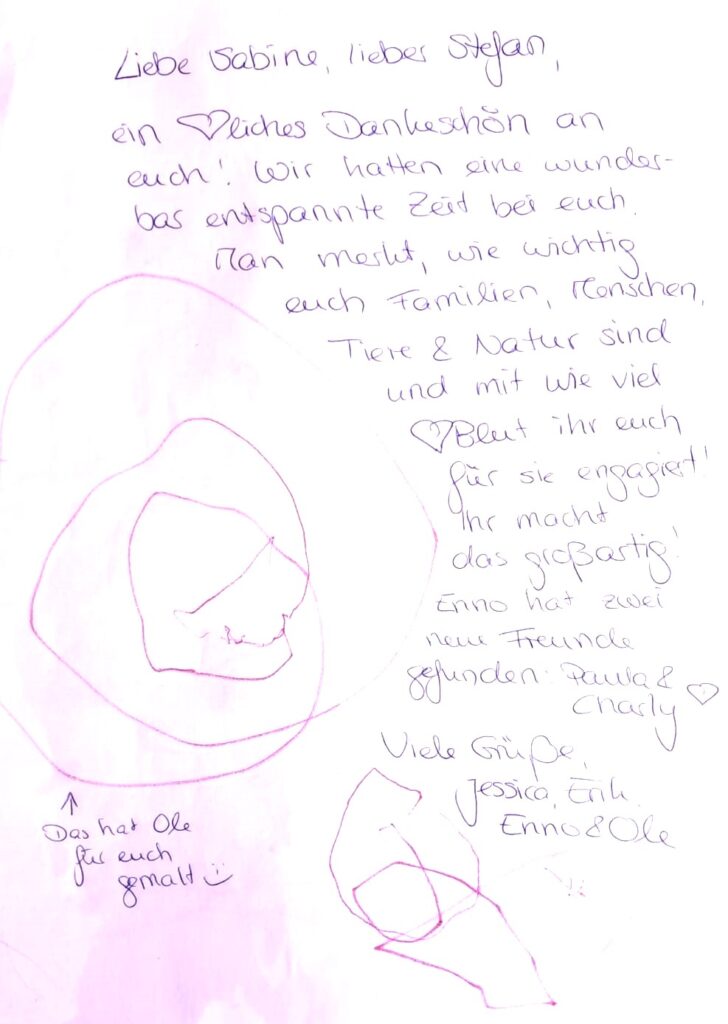 Liebe Sabine, lieber Stefan,
ein ♡liches Dankeschön an
euch! Wir hatten eine wunder-
bar entspannte Zeit bei euch.
Man merkt, wie wichtig
euch Familien, Menschen,
Tiere & Natur sind
und mit wie viel
♡Blut ihr euch
für sie engagiert!
Ihr macht
das großartig!
Enno hat zwei
neue Freunde
gefunden: Paula &
Charly ♡
Viele Grüße,
Jessica, Erik,
Enno & Ole
↑
Das hat Ole
für euch
gemalt :)